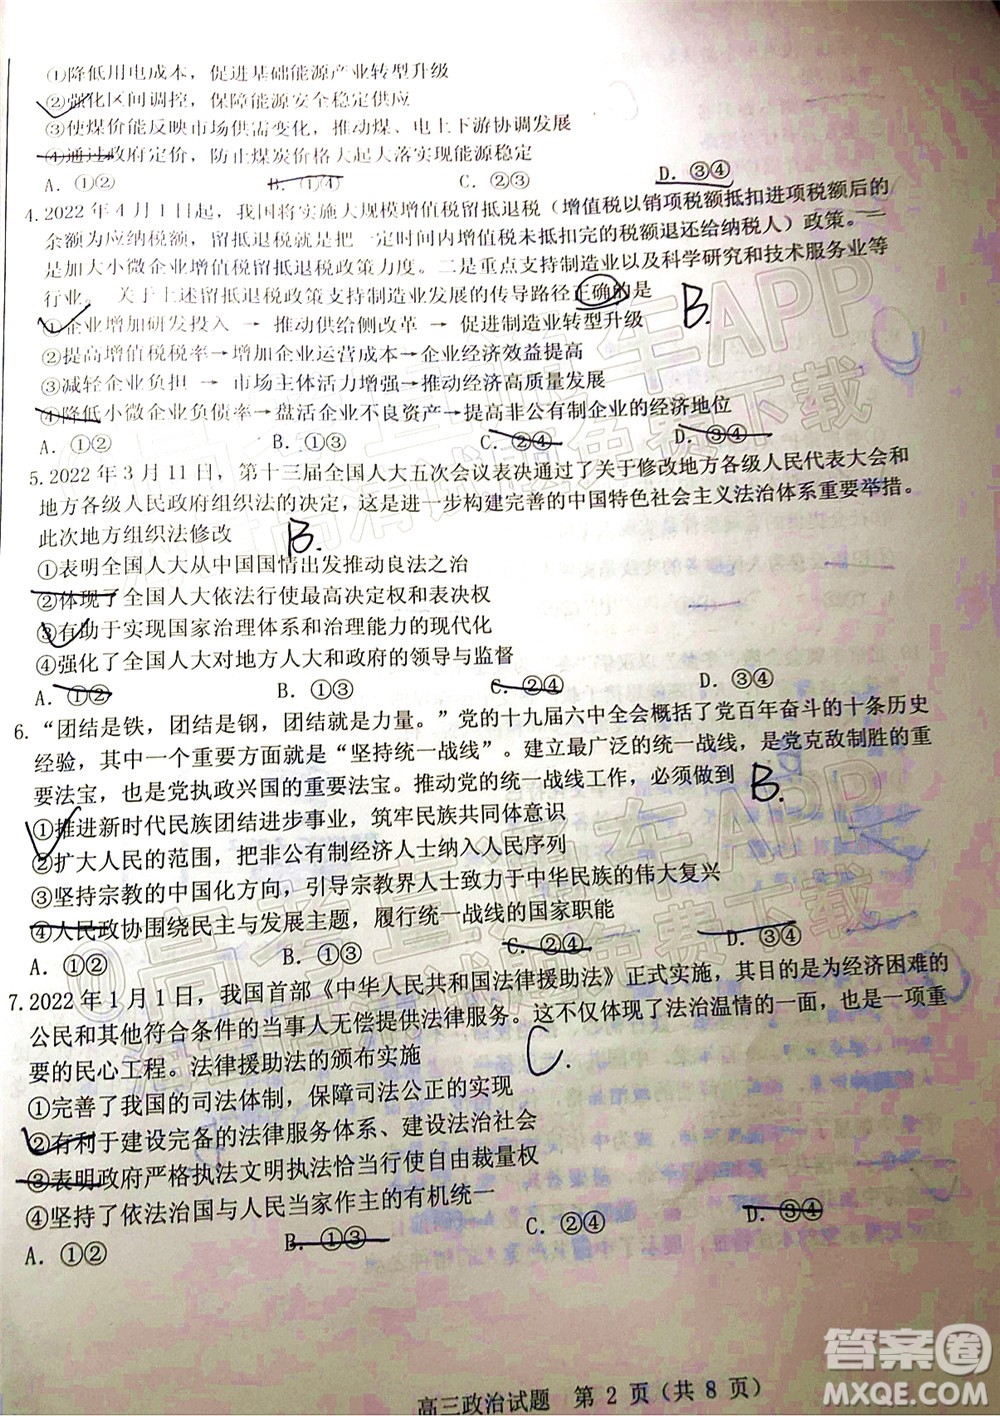 ①降低用电成本，促进基础能源产业转型升级
②强化区间调控，保障能源安全稳定供应
③使煤价能反映市场供需变化，推动煤、电上下游协调发展
④通过政府定价，防止煤炭价格大起大落实现能源稳定
A．①② B．①③ C．②③ D．③④
4.2022年4月1日起，我国将实施大规模增值税留抵退税（增值税以销项税额抵扣进项税额后的
余额为应纳税额，留抵退税就是把增值税未抵扣完的税额退还给纳税人）政策。一
是加大小微企业增值税留抵退税政策力度。二是重点支持制造业以及科学研究和技术服务业等
行业。 关于上述留抵退税政策支持制造业发展的传导路径正确的是 B.
①企业增加研发投入 → 推动供给侧改革 → 促进制造业转型升级
②提高增值税税率→企业运营成本→企业经济效益提高
③减轻企业负担 → 市场主体活力增强→推动经济高质量发展
④降低小微企业负债率→盘活企业不良资产→提高非公有制企业的经济地位
A．①② B．①③ C．②④ D．③④
5.2022年3月11日，第十三届全国人大五次会议表决通过了关于修改地方各级人民代表大会和
地方各级人民政府组织法的决定，这是进一步构建完善的中国特色社会主义法治体系重要举措。
此次地方组织法修改 B.
①表明全国人大从中国国情出发推动良法之治
②体现了全国人大依法行使最高决定权和表决权
③有助于实现国家治理体系和治理能力的现代化
④强化了全国人大对地方人大和政府的领导与监督
A．①② B．①③ C．②④ D．③④
6.“团结是铁，团结是钢，团结就是力量。”党的十九届六中全会概括了党百年奋斗的十条历史
经验，其中一个重要方面就是“坚持统一战线”。建立最广泛的统一战线，是党克敌制胜的重
要法宝，也是党执政兴国的重要法宝。推动党的统一战线工作，必须做到 B.
①推进新时代民族团结进步事业，筑牢民族共同体意识
②扩大人民的范围，把非公有制经济人士纳入人民序列
③坚持宗教的中国化方向，引导宗教界人士致力于中华民族的伟大复兴
④人民政协围绕民主与发展主题，履行统一战线的国家职能
A．①② B．①③ C．②④ D．③④
7.2022年1月1日，我国首部《中华人民共和国法律援助法》正式实施，其目的是为经济困难的
公民和其他符合条件的当事人无偿提供法律服务。这不仅体现了法治温情的一面，也是一项重
要的民心工程。法律援助法的颁布实施 C.
①完善了我国的司法体制，保障司法公正的实现
②有利于建设完备的法律服务体系、建设法治社会
③表明政府严格执法文明执法恰当行使自由裁量权
④坚持了依法治国与人民当家作主的有机统一
A．①② B．①③ C．②④ D．③④
高三政治试题 第 2 页（共 8 页）
答案圈
MXQE.COM